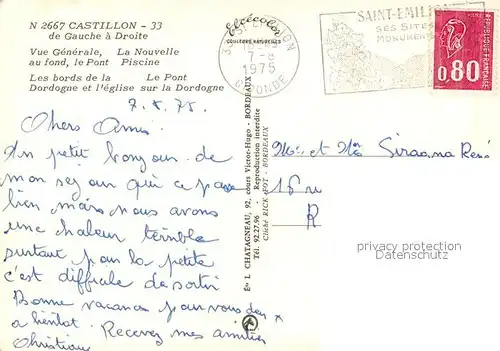 N 2667 CASTILLON - 33
de Gauche à Droite
Vue Générale, La Nouvelle
au fond, le Pont Piscine
Les bords de la Le Pont
Dordogne et l'église sur la Dordogne
7.8.75
Chers Amis
Un petit bonjour de
mon séjour qui ce passe
bien mais nous avons
une chaleur terrible
surtout pour la petite
c'est difficile de sortir
Bonne vacances pour vous deux
a bientot. Recevez mes amitiés
Christiane
elcécolor
COULEURS NATURELLES
Éts L. CHATAGNEAU, 92, cours Victor-Hugo - BORDEAUX
Tél. 92.27.96 - Reproduction interdite
Cliché RICK POT - BORDEAUX
1975
GIRONDE
SAINT-EMILION
SES SITES
MONUMENTS
REPUBLIQUE FRANÇAISE
0,80
Mr et Mme Siragna René
16 ru
R
privacy protection